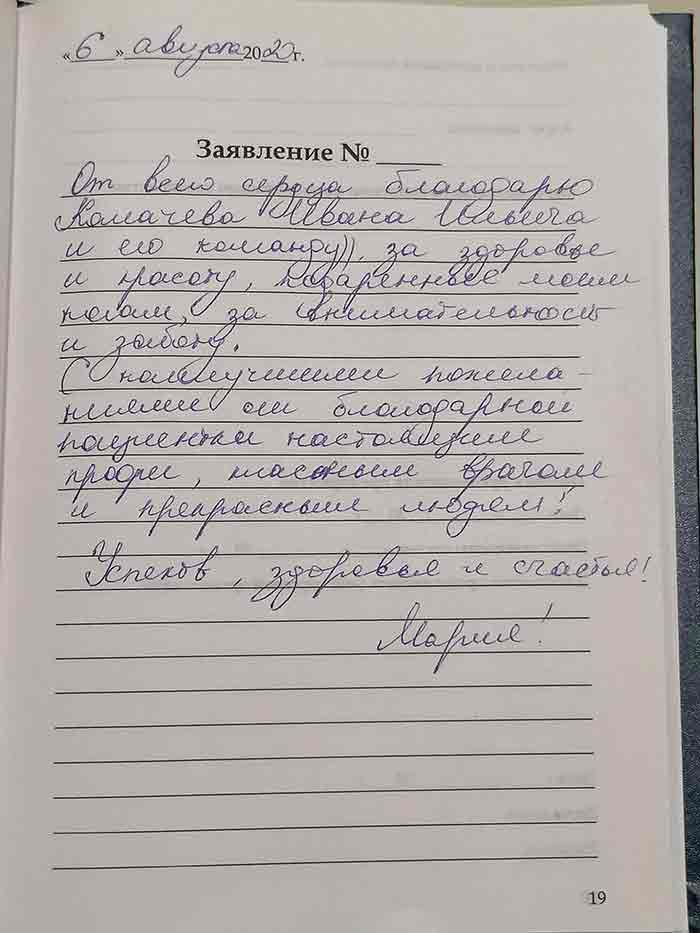 «6» августа 2020 г.
Заявление № ____
От всего сердца благодарю
Колачева Ивана Ильича
и его команду)), за здоровье
и красоту, подаренные моим
ногам, за внимательность
и заботу.
С наилучшими пожела-
ниями от благодарной
пациентки настоящим
профи, классным врачам
и прекрасным людям!
Успехов, здоровья и счастья!
Мария!
19